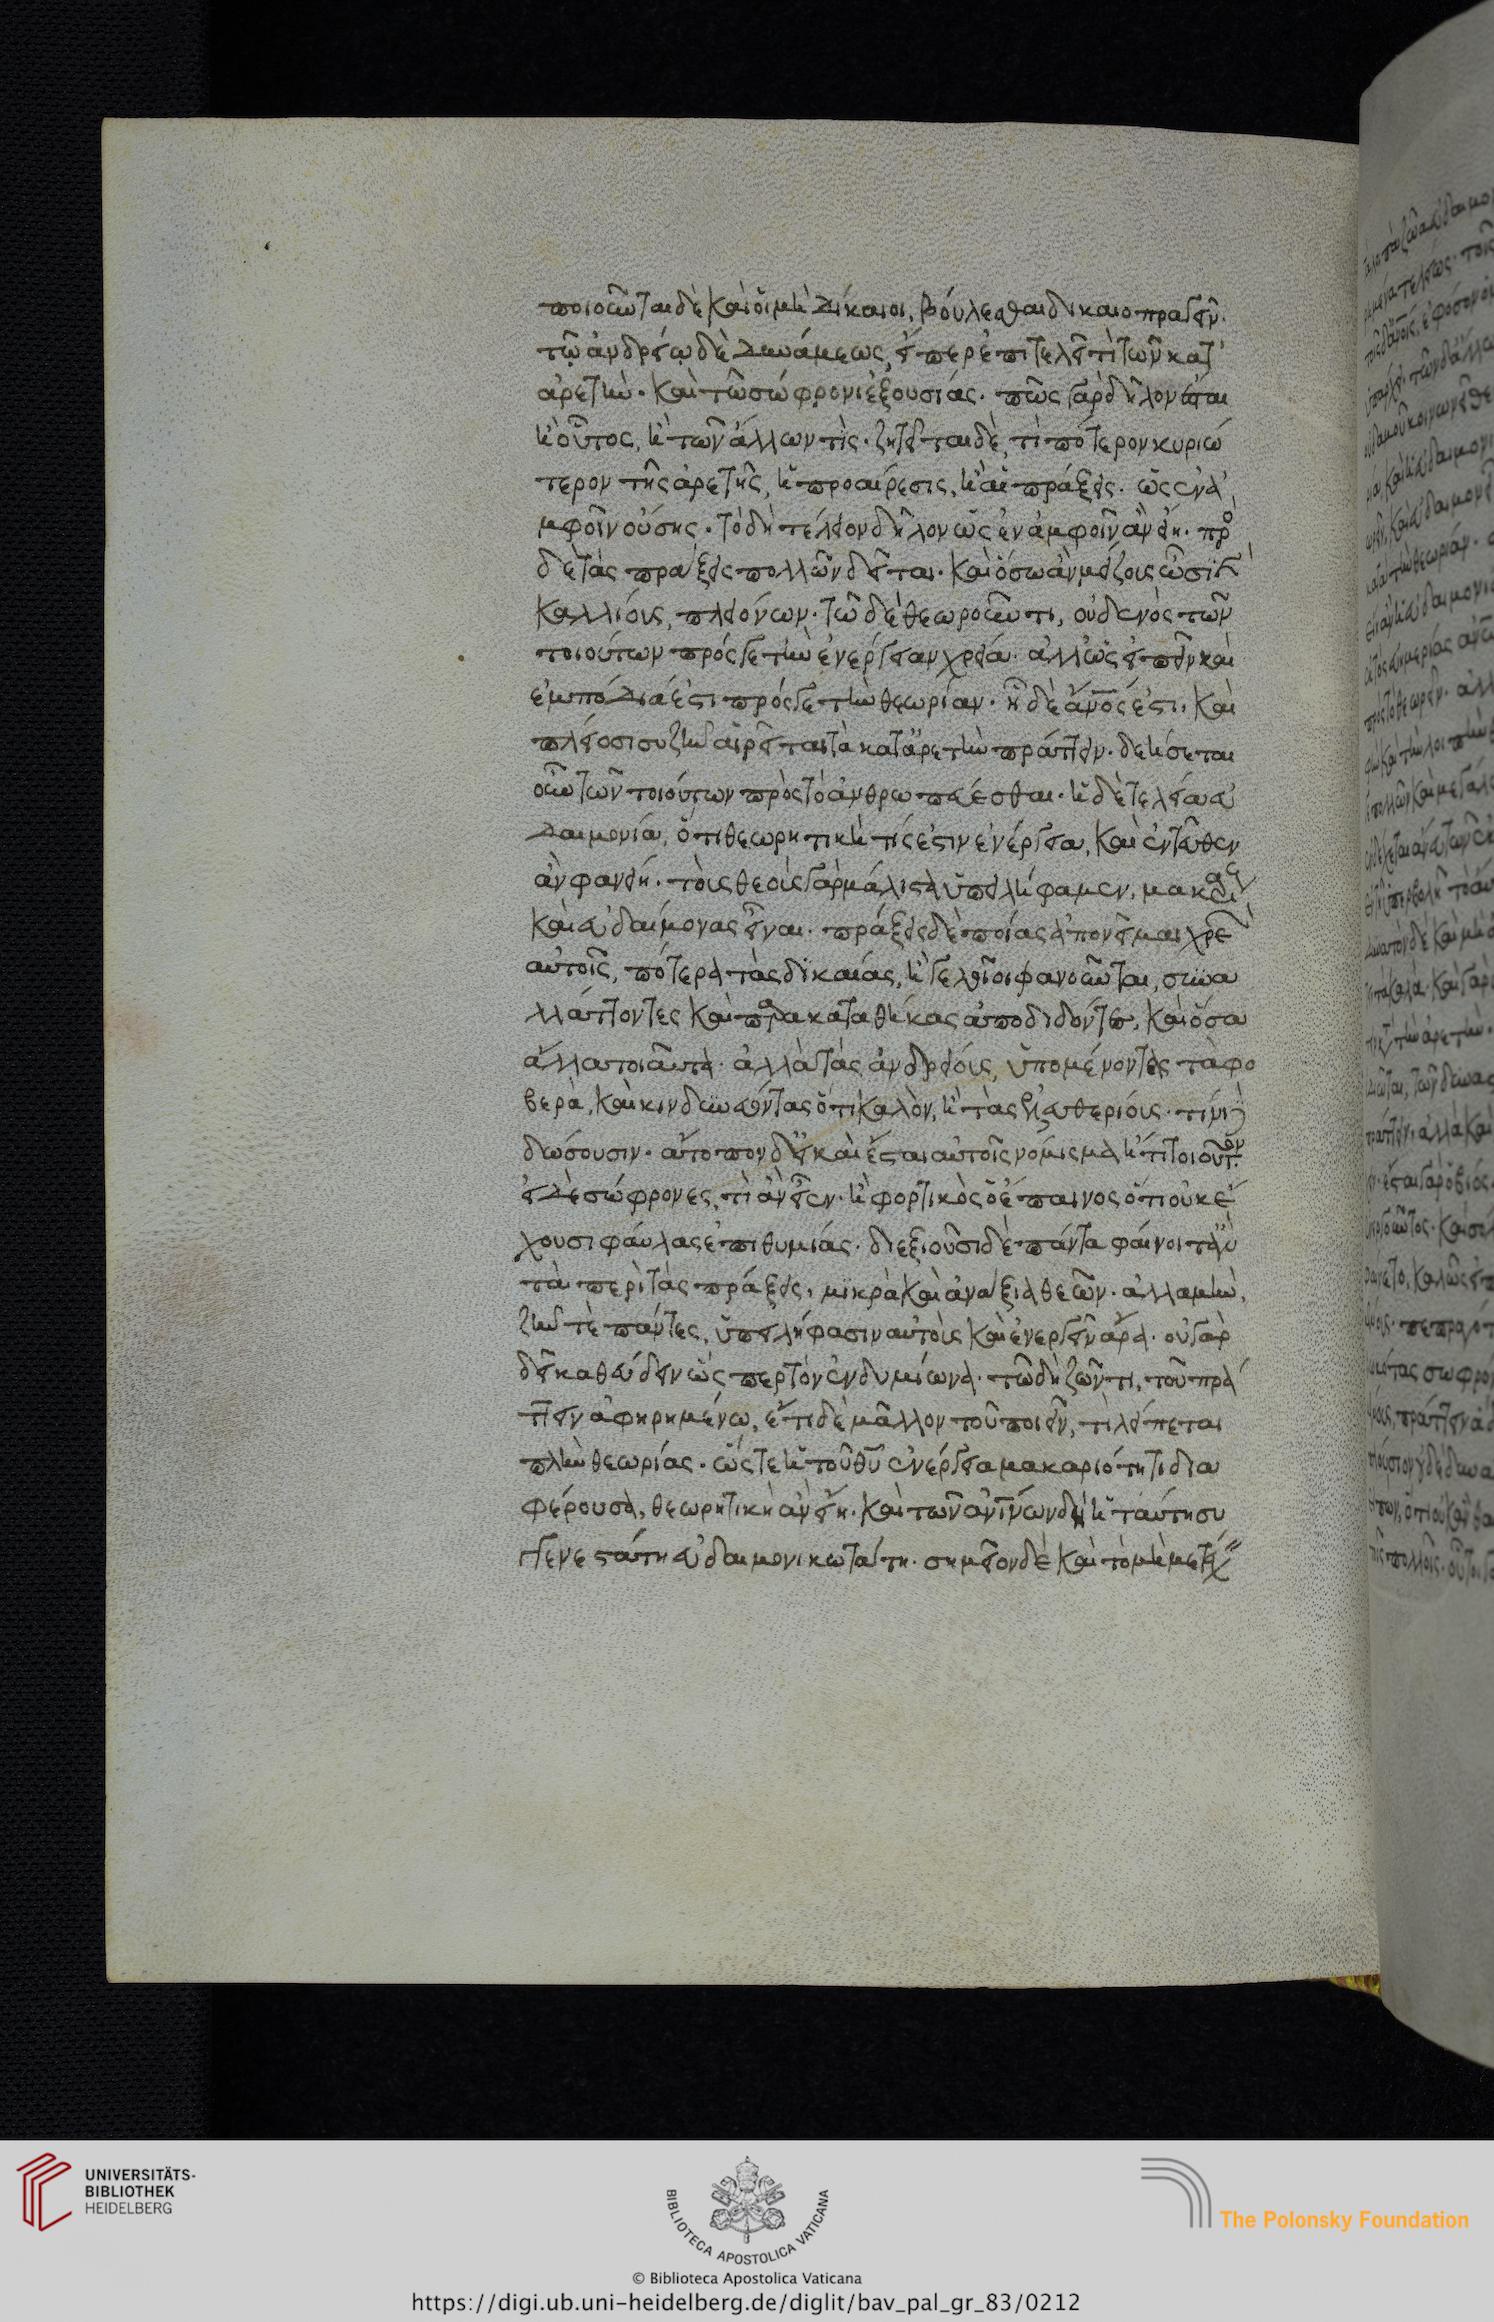 ποιοῦνται δὲ καὶ οἱ μὴ δίκαιοι, βούλεσθαι δικαιοπραγεῖν.
τῷ ἀνδρείῳ δὲ δυνάμεως, εἴπερ ἐπιτελεῖ τὶ τῶν κατ'
ἀρετὴν. καὶ τῶ σώφρονι ἐξουσίας. πῶς γὰρ δῆλον ἔσται
ἢ οὗτος, ἢ τῶν ἄλλων τὶς. ζητεῖται δὲ, τί πότερον κυριώ
τερον τῆς ἀρετῆς, ἡ προαίρεσις, ἢ αἱ πράξεις. ὡς ἐν ἀ
μφοῖν οὔσης. τὸ δὴ τέλειον δῆλον ὡς ἐν ἀμφοῖν ἂν εἴη. πρὸ
δὲ τὰς πράξεις πολλῶν δεῖται. καὶ ὅσω ἂν μείζους ὦσι κ
καλλίους, πλειόνων. τῶ δὲ θεωροῦντι, οὐδενὸς τῶν
τοιούτων πρός γε τὴν ἐνέργειαν χρεία. ἀλλ' ὡς εἰπεῖν καὶ
ἐμπόδιά ἐστι πρός γε τὴν θεωρίαν. ἧ δὲ ἄνος ἐστι, καὶ
πλείοσι συζῆν αἱρεῖται τὰ κατ' ἀρετὴν πράττειν. δεήσεται
οὖν τῶν τοιούτων πρὸς τὸ ἀνθρωπεύεσθαι. ἡ δὲ τελεία εὐ
δαιμονία, ὅτι θεωρητική τίς ἐστιν ἐνέργεια, καὶ ἐντεῦθεν
ἂν φανείη. τοὺς θεοὺς γὰρ μάλιστα ὑπειλήφαμεν, μακαρι
καὶ εὐδαίμονας εἶναι. πράξεις δὲ ποίας ἀπονεῖμαι χρε
αὐτοῖς, πότερα τὰς δικαίας, ἢ γελοῖοι φανοῦνται, συνα
λλάττοντες καὶ παρακαταθήκας ἀποδιδόντες, καὶ ὅσα
ἄλλα τοιαῦτα. ἀλλὰ τὰς ἀνδρείους, ὑπομένοντας τὰ φο
βερὰ, καὶ κινδυνεύοντας ὅτι καλὸν, ἢ τὰς ἐλευθερίους. τίνι
δώσουσιν. ἄτοπον δ' εἰ καὶ ἔσται αὐτοῖς νόμισμα ἤ τι τοιοῦτον
εἰ δὲ σώφρονες, τί ἂν εἶεν. ἢ φορτικὸς ὁ ἔπαινος ὅτι οὐκ ἔ
χουσι φαύλας ἐπιθυμίας. διεξιοῦσι δὲ πάντα φαίνοιτ' ἂν
τὰ περὶ τὰς πράξεις, μικρὰ καὶ ἀνάξια θεῶν. ἀλλὰ μὴν,
ζῆν τὲ πάντες, ὑπειλήφασιν αὐτοὺς καὶ ἐνεργεῖν ἄρα. οὐ γὰρ
δεῖ καθεύδειν ὥσπερ τὸν ἐνδυμίωνα. τῶ δὴ ζῶντι, τοῦ πρά
ττειν ἀφηρημένω, ἔτι δὲ μᾶλλον τοῦ ποιεῖν, τί λείπεται
πλὴν θεωρίας. ὥστε ἡ τοῦ θυ ἐνέργεια μακαριότητι δια
φέρουσα, θεωρητικὴ ἂν εἴη. καὶ τῶν ἀνίνων δὴ ἡ ταύτη συ
γγενεστάτη εὐδαιμονικωτάτη. σημεῖον δὲ καὶ τὸ μὴ μετέχ
UNIVERSITÄTS-
BIBLIOTHEK
HEIDELBERG
BIBLIOTECA APOSTOLICA VATICANA
The Polonsky Foundation
© Biblioteca Apostolica Vaticana
https://digi.ub.uni-heidelberg.de/diglit/bav_pal_gr_83/0212